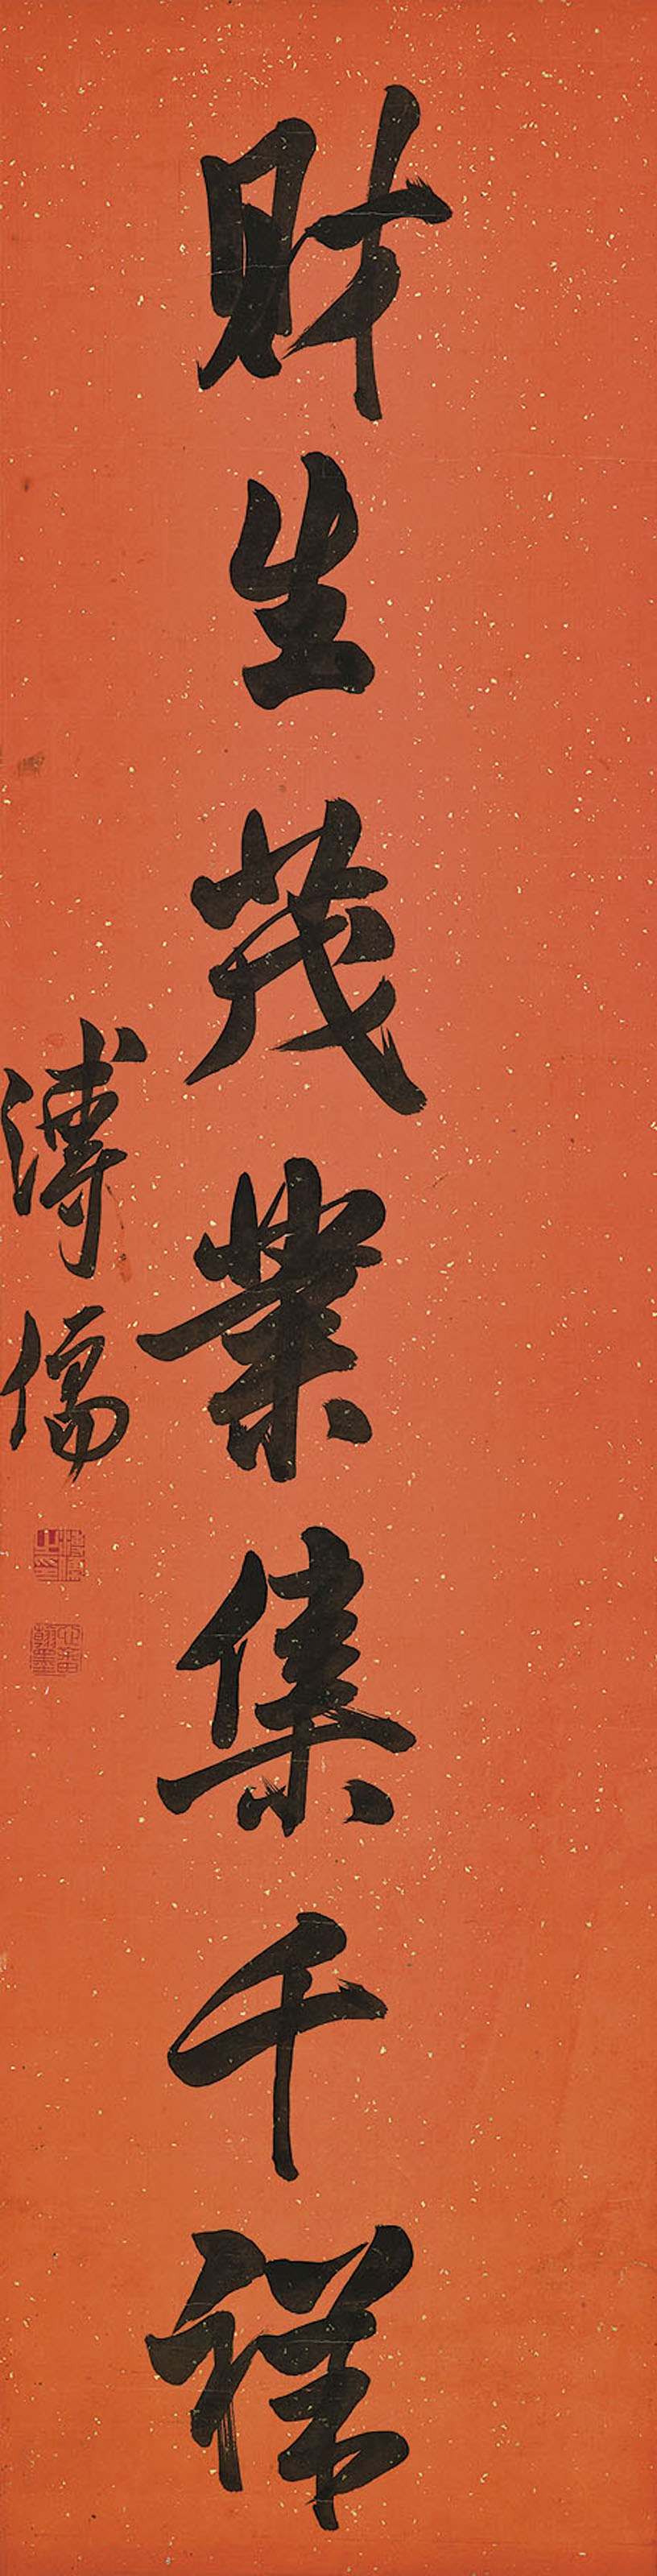 財生茂業集千祥
溥儒